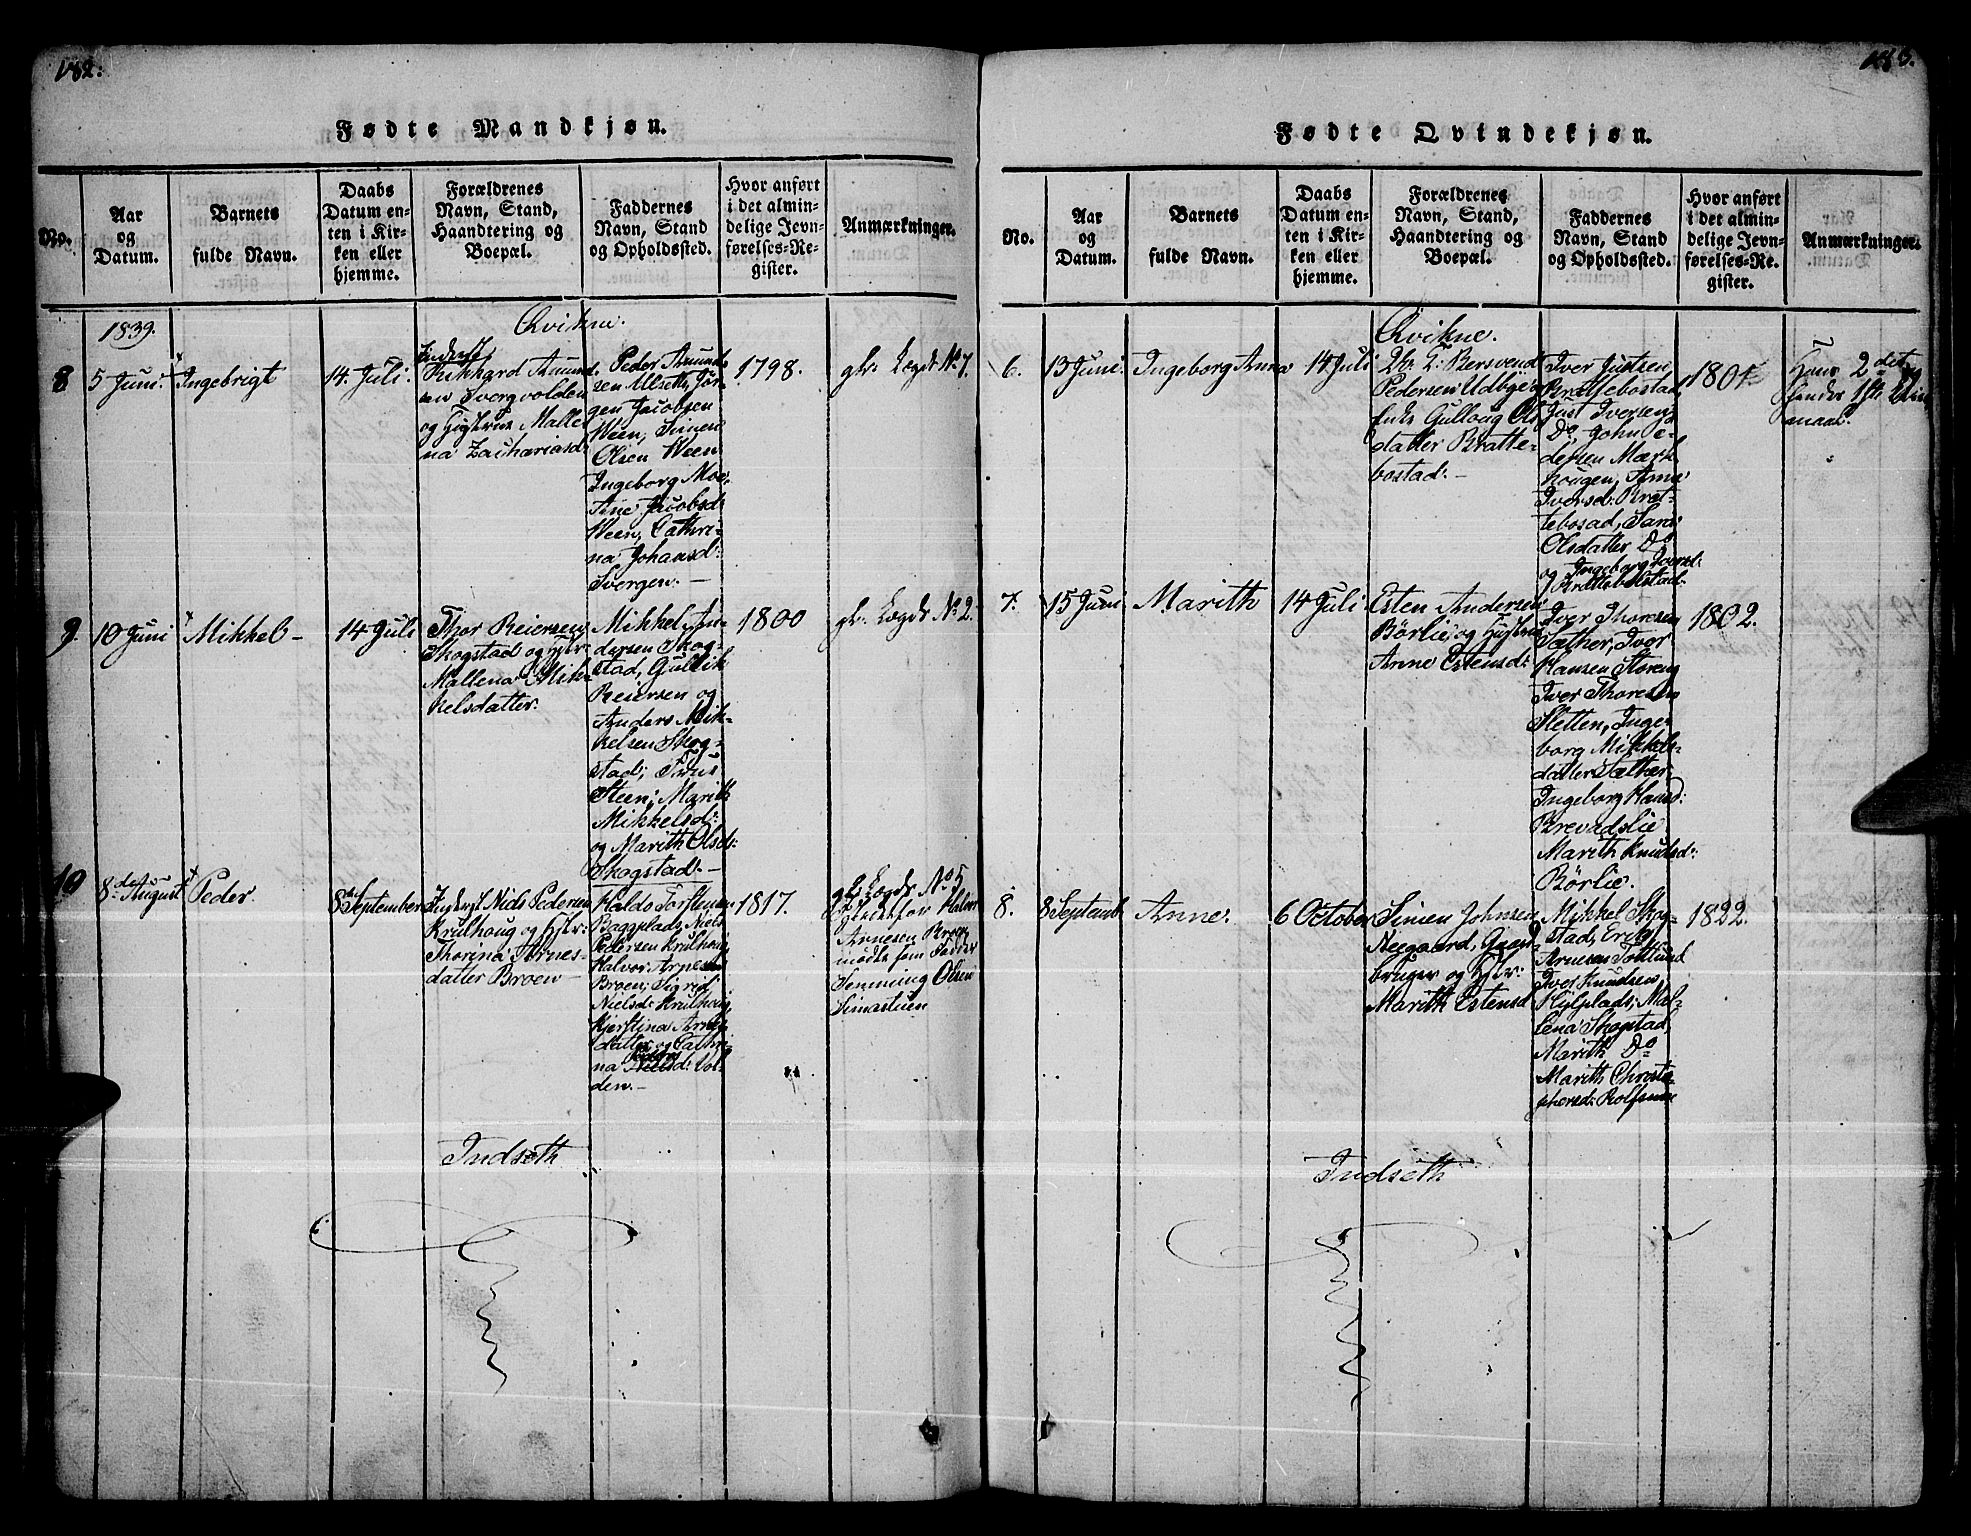 182:
Fødte Mandkjøn.
No.
Aar
og
Datum.
Barnets
fulde Navn.
Daabs
Datum en-
ten i Kir-
ken eller
hjemme.
Forældrenes
Navn, Stand,
Haandtering og
Boepæl.
Faddernes
Navn, Stand
og Opholdssted.
Hvor anført
i det almin-
delige Jevn-
førelses-Re-
gister.
Anmærkninger.
1839.
Qvikne.
8
5 Juni.
Ingebrigt
14. Juli.
Inderst
Rikhard Amund-
sen Svergvolden
og Hustrue Malle-
na Zachariasd:
Peder Amund-
sen Ulseth, Jør-
gen Jacobsen
Ween, Simen
Olsen Ween
Ingeborg Moe,
Ane Jacobsd:
Ween, Cathri-
na Johansd:
Svergen. —
1798.
gl. Lægds No 7.
9.
10 Juni
Mikkel —
14 Juli
Thor Reiersen
Skogstad og Hstr:
Mallena Mik-
kelsdatter.
Mikkel An-
dersen Skog-
stad, Gullik
Reiersen og
Anders Mik-
kelsen Skog-
stad;
Steen; Marith
Mikkelsd:
og Marith Olsd:
Skogstad. —
1800
gl. Lægds No 2.
10
8de August
Peder.
8 September
Inderst Niels Pedersen
Krulhoug og Hstr:
Thorina Arnes-
datter Broen —
Haldo Torstensen
Baggplads, Niels
Pedersen Krulhoug
Halvor Arnesen
Broen; Sigrid
Nielsd: Krulhoug,
Kjerstina Arnes-
datter og Cathri-
na Nielsd: Vol-
den. —
1817.
gl. Lægds No 5
Istedetfor Halvor
Arnesen Broen
mødte som Fadder
Henning Olsen
Indseth
183.
Fødte Qvindekjøn.
No.
Aar
og
Datum.
Barnets
fulde Navn.
Daabs
Datum en-
ten i Kir-
ken eller
hjemme.
Forældrenes
Navn, Stand,
Haandtering og
Boepæl.
Faddernes
Navn, Stand
og Opholdssted.
Hvor anført
i det almin-
delige Jevn-
førelses-Re-
gister.
Anmærkninger.
Qvikne.
6.
13 Juni.
Ingeborg Anna
14 Juli
Bersvend
Pedersen Udbye og
Gulloug Ols-
datter Bratte-
bostad. —
Iver Justsen
Brattebostad,
Just Iversen
Do John E-
dersen Mærk-
hougen, Anne
Iversd: Brat-
tebosad, Sara
Olsdatter Do
og Ingeborg Iversd:
Brattebostad.
1801
Hans 2det og
hendes 1ste Leier-
maal.
7.
15 Juni
Marith
14 Juli
Esten Andersen
Børlie og Hustrue
Anne Estensd:
Iver Thoresen
Sæther, Iver
Hansen Storeng
Iver Thoresen
Sletten, Inge-
borg Mikkels-
datter Sæther,
Ingeborg Hansd:
Brevadslie
Marith Knudsd:
Børlie.
1802.
8.
8 Septemb
Anne.
6 October
Simen Johnsen
Neegaard, Gaard-
bruger og Hstr:
Marith Estensd
Mikkel Skog-
stad, Erik
Arnesen
Iver Knudsen
Hylplads; Mal-
lena Skogstad,
Marith Do
Marith Christo-
phersd:
1822.
Indseth